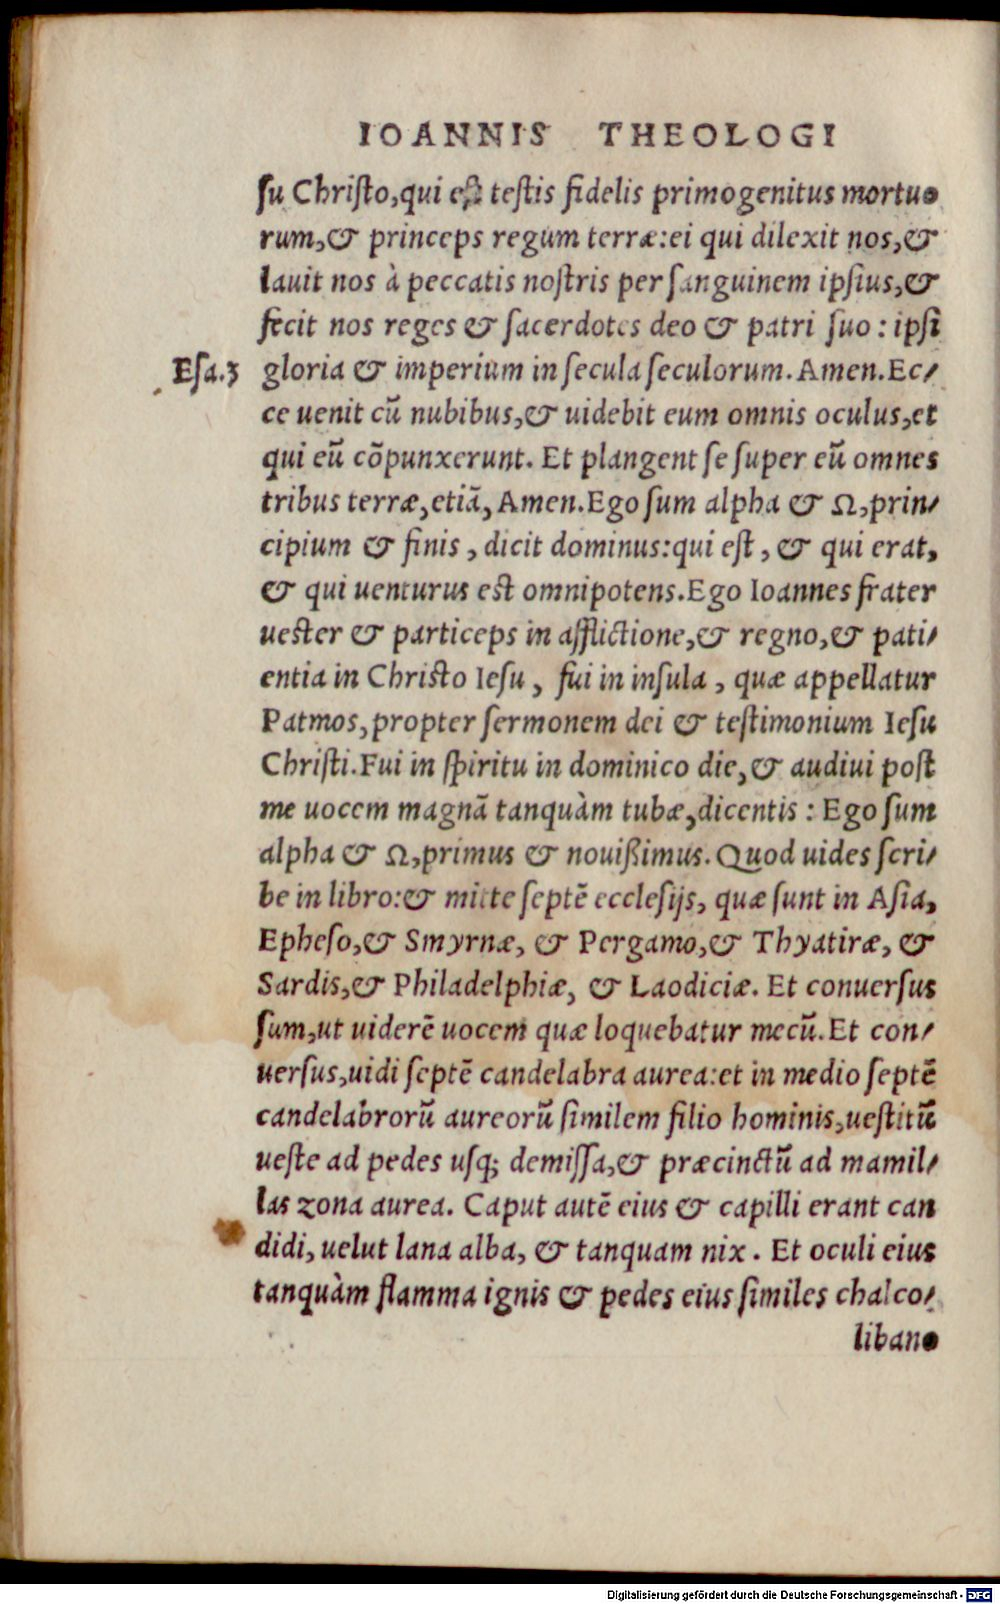 IOANNIS THEOLOGI
ſu Chriſto,qui eſt teſtis fidelis primogenitus mortuo
rum,& princeps regum terræ:ei qui dilexit nos,&
lauit nos à peccatis noſtris per ſanguinem ipſius,&
fecit nos reges & ſacerdotes deo & patri ſuo : ipſi
Eſa.3 gloria & imperium in ſecula ſeculorum. Amen. Ec/
ce uenit cū nubibus,& uidebit eum omnis oculus,et
qui eū cōpunxerunt. Et plangent ſe ſuper eū omnes
tribus terræ,etiā, Amen.Ego ſum alpha & Ω,prin/
cipium & finis , dicit dominus:qui eſt , & qui erat,
& qui uenturus est omnipotens.Ego Ioannes frater
ueſter & particeps in afflictione,& regno,& pati/
entia in Chriſto Ieſu , fui in inſula , quæ appellatur
Patmos,propter ſermonem dei & teſtimonium Ieſu
Chriſti.Fui in ſpiritu in dominico die,& audiui poſt
me uocem magnā tanquàm tubæ,dicentis : Ego ſum
alpha & Ω,primus & nouißimus. Quod uides ſcri/
be in libro:& mitte ſeptē eccleſijs, quæ ſunt in Aſia,
Epheſo,& Smyrnæ, & Pergamo,& Thyatiræ, &
Sardis,& Philadelphiæ, & Laodiciæ. Et conuerſus
ſum,ut uiderē uocem quæ loquebatur mecū.Et con/
uerſus,uidi ſeptē candelabra aurea:et in medio ſeptē
candelabrorū aureorū ſimilem filio hominis,ueſtitū
ueſte ad pedes uſq; demiſſa,& præcinctū ad mamil/
las zona aurea. Caput autē eius & capilli erant can
didi, uelut lana alba, & tanquam nix . Et oculi eius
tanquàm flamma ignis & pedes eius ſimiles chalco/
libano
Digitalisierung gefördert durch die Deutsche Forschungsgemeinschaft - DFG